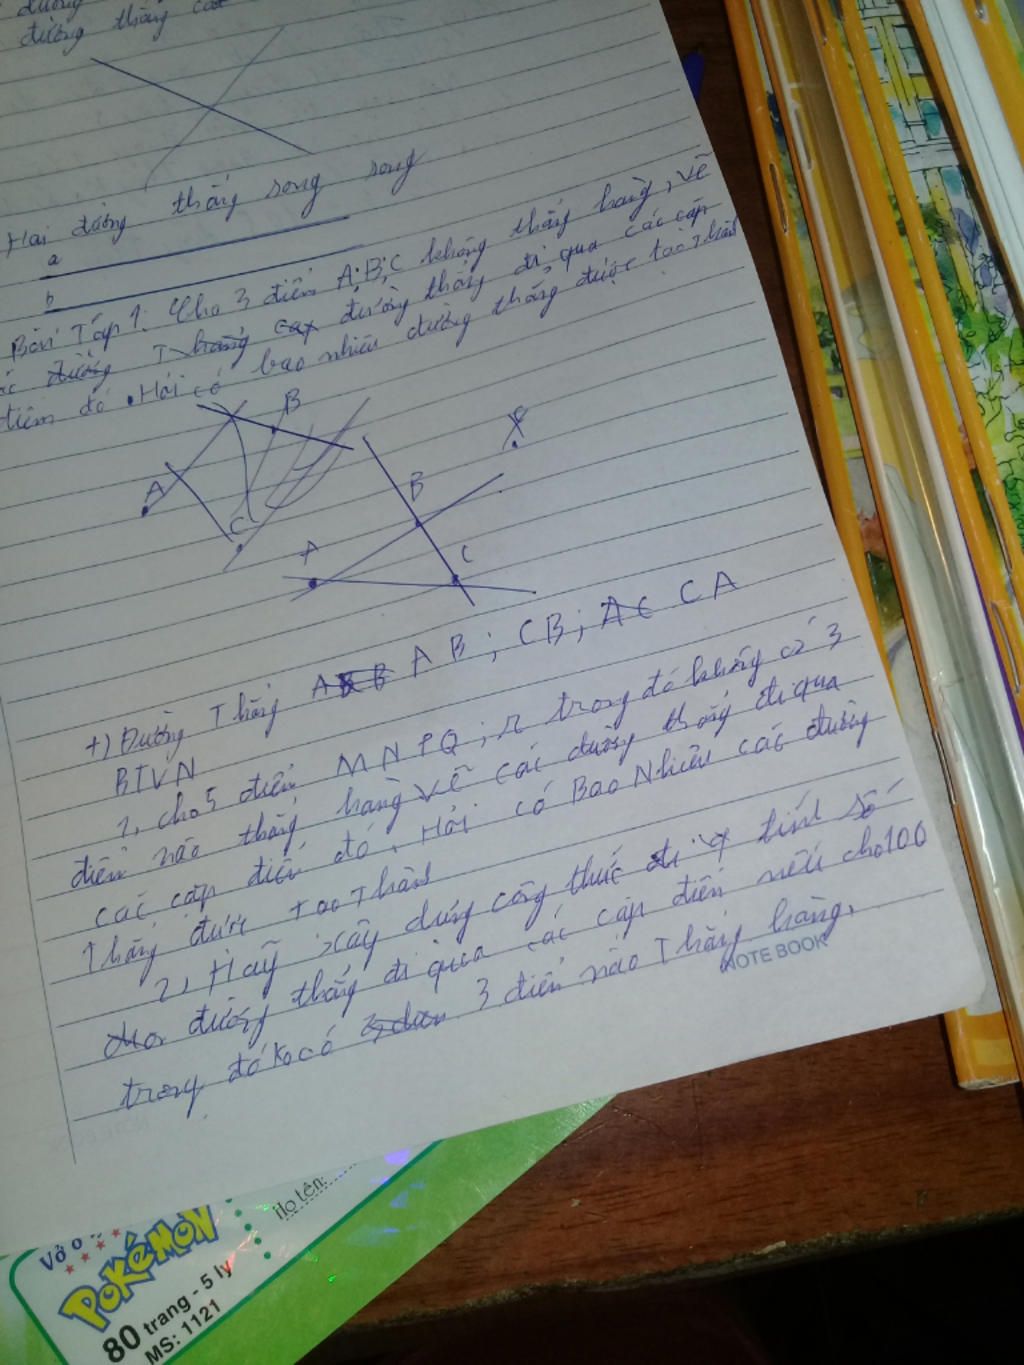 đường
đường thẳng cắt
Hai đường thẳng song song
a
b
Bài Tập 1: Cho 3 điểm A;B;C không thẳng hàng, vẽ
các đường thẳng đường thẳng đi qua các cặp
điểm đó. Hỏi có bao nhiêu đường thẳng được tạo thành
B
A
C
B
A
C
+) Đường Thẳng A B ; C B ; A C C A
BTVN
1, cho 5 điểm M N P Q ; R trong đó không có 3
điểm nào thẳng hàng vẽ các đường thẳng đi qua
các cặp điểm đó. Hỏi có Bao Nhiêu các đường
Thẳng được tạo Thành
2, Hãy xây dựng công thức tính số
đường thẳng đi qua các cặp điểm nếu cho 100
trong đó ko có 3 điểm nào Thẳng hàng.
NOTE BOOK
Họ tên:
Vở ô
POKÉMON
80 trang - 5 ly
MS: 1121